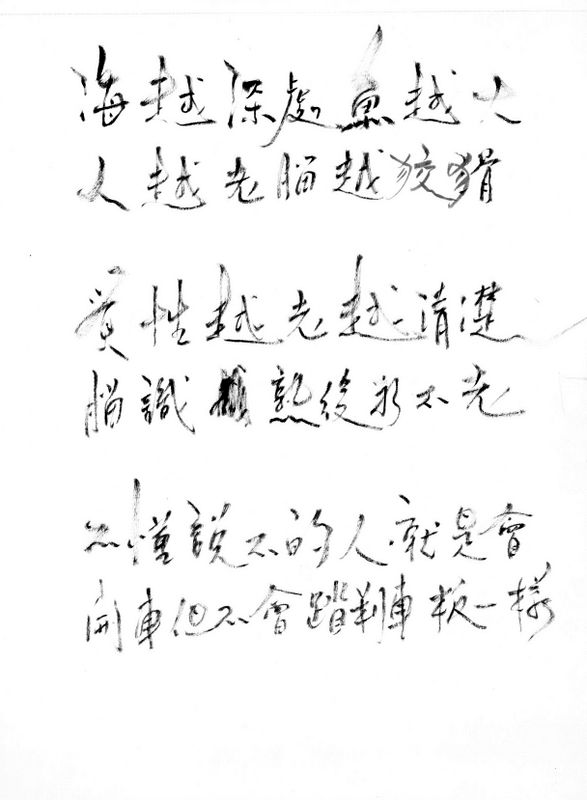 海越深處魚越大
人越老腦越狡猾
質性越老越清楚
腦識 熟後永不老
不懂說不的人就是會
開車但不會踏剎車板一樣